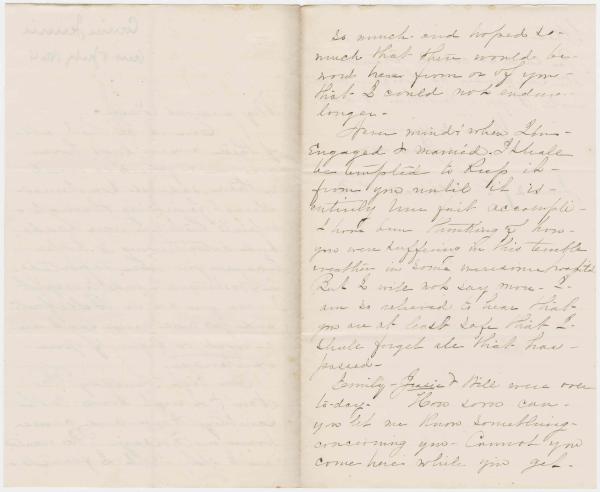 so much and hoped so-
much that there would be-
word here from or of you-
that I could not endure
longer-
Never mind when I'm-
Engaged & married I shall
be tempted to keep it-
from you until it is-
entirely une fait accompli-
I have been thinking of how-
you were suffering in this terrible
weather in some
But I will not say more- I-
am so relieved to hear that-
you are at least safe that I-
shall forget all that has-
passed-
Emily- Josie & Will were over
to-day- How soon can-
you let me know something-
concerning you- Cannot you
come here while you get-